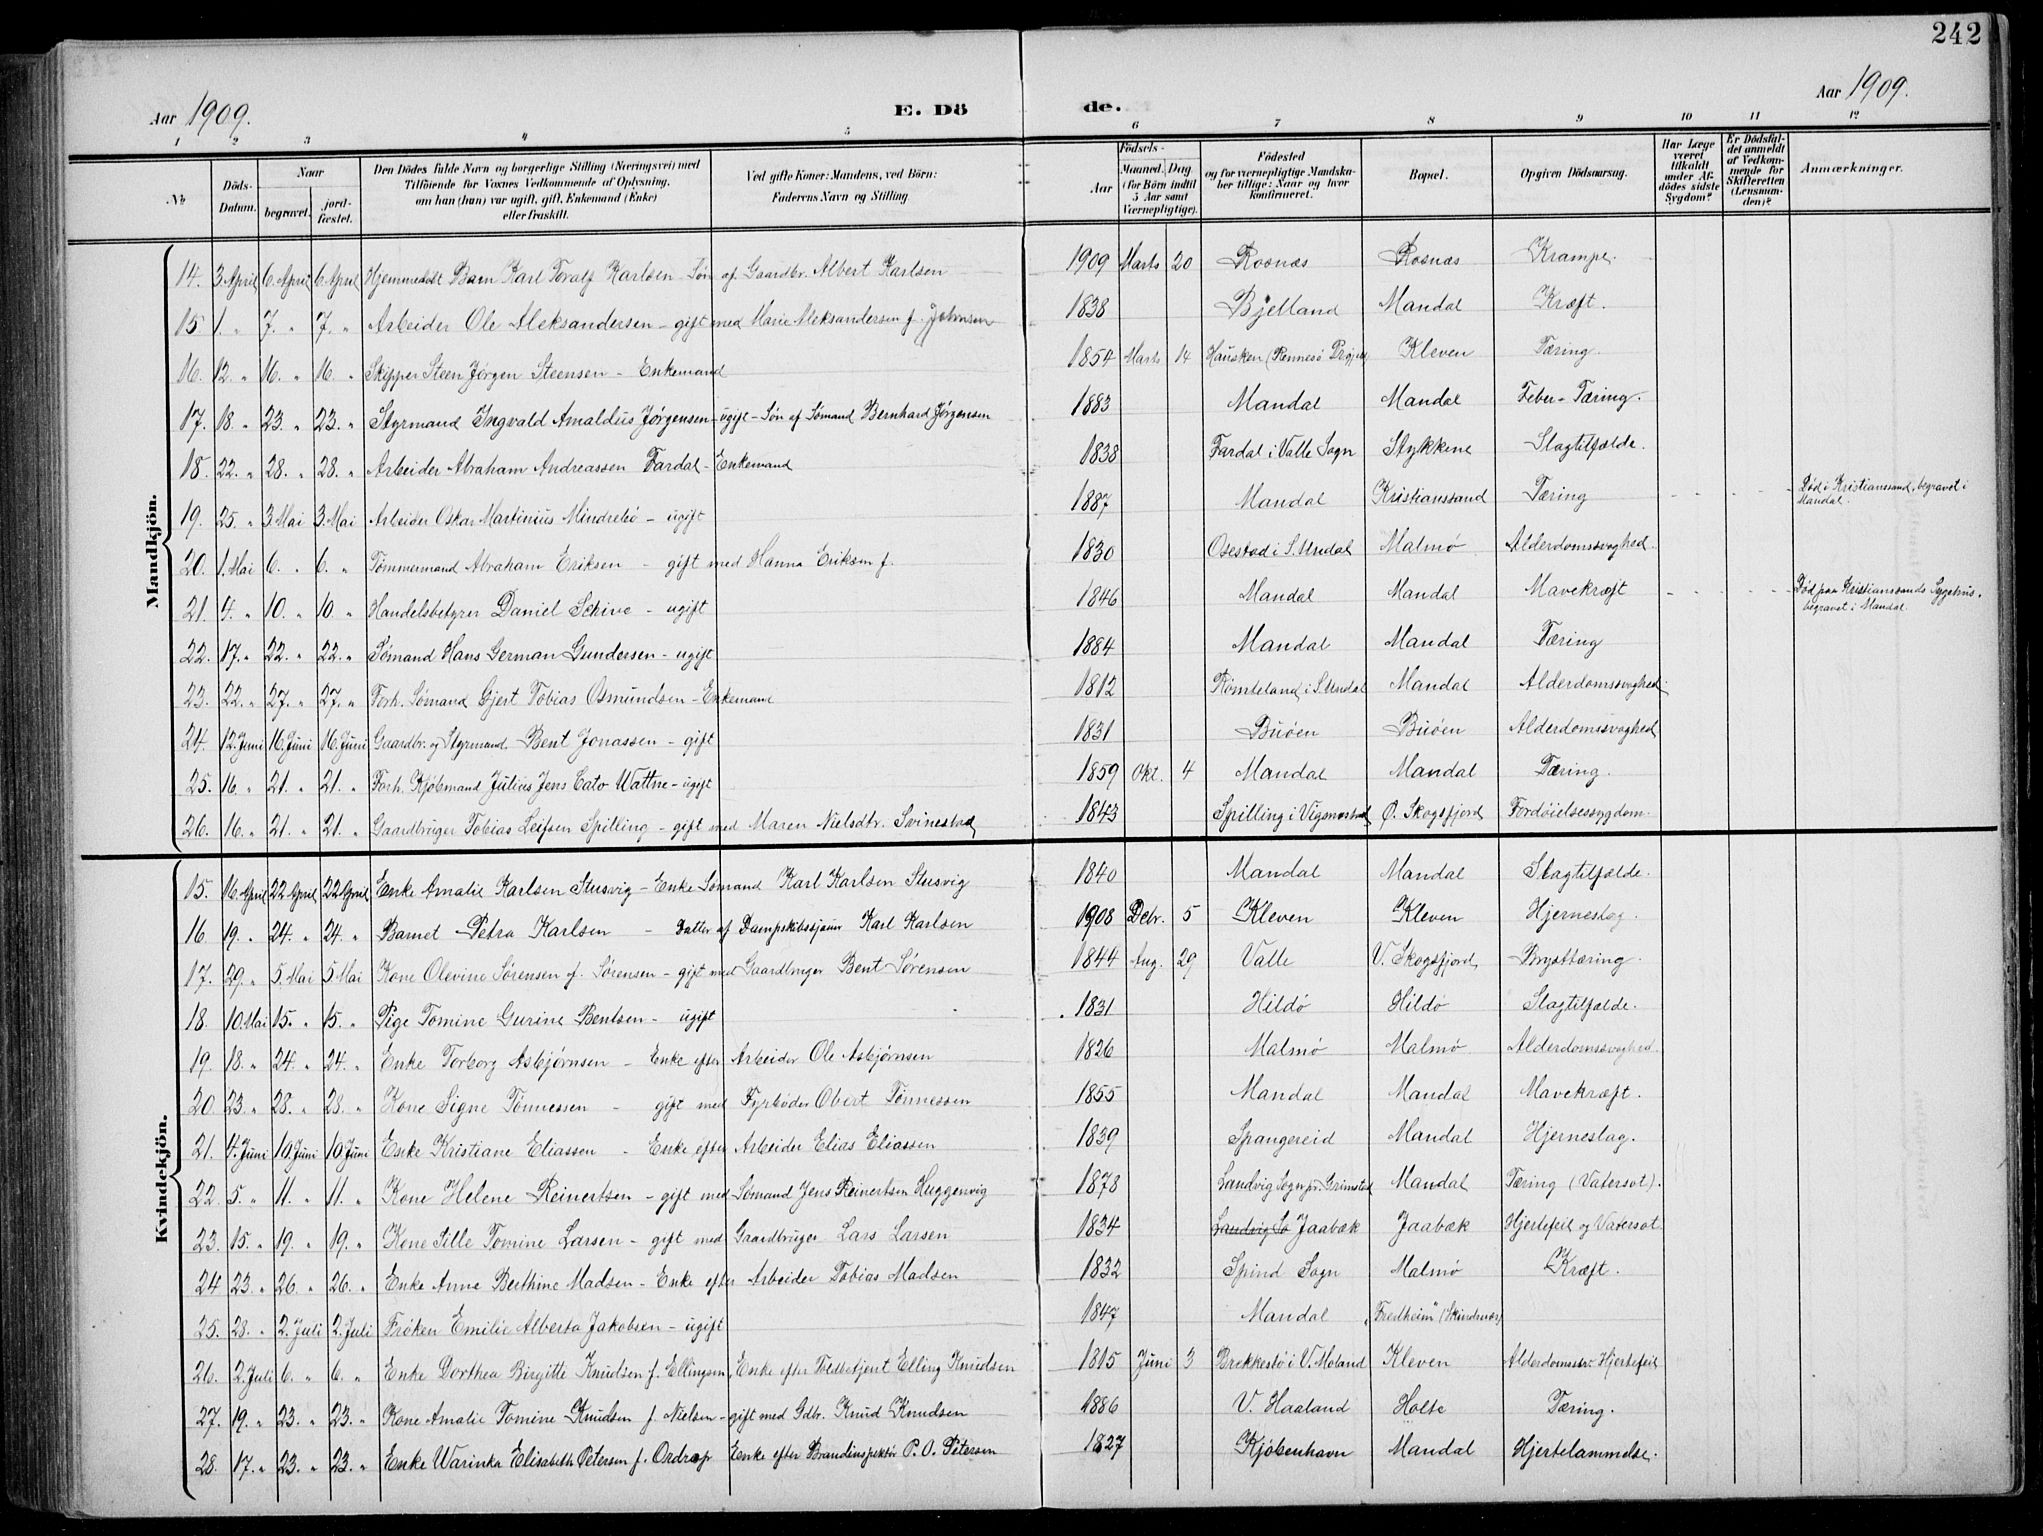 242
Aar 1909.
E. Dö de.
Aar 1909.
1 2 3 4 5 6 7 8 9 10 11 12
No
Döds-Datum.
Naar
begravet.
jord-fæstet.
Den Dödes fulde Navn og borgerlige Stilling (Næringsvei) med
Tilföiende for Voxnes Vedkommende af Oplysning,
om han (hun) var ugift, gift, Enkemand (Enke)
eller fraskilt.
Ved gifte Koner: Mandens, ved Börn:
Faderens Navn og Stilling.
Födsels-
Aar
Maaned. Dag
(for Börn indtil
5 Aar samt
Værnepligtige).
Födested
og for værnepligtige Mandska-
ber tillige: Naar og hvor
konfirmeret.
Bopæl.
Opgiven Dödsaarsag.
Har Læge
været
tilkaldt
under Af-
dödes sidste
Sygdom?
Er Dödsfal-
det anmeldt
af Vedkom-
mende for
Skifteretten
(Lensman-
den)?
Anmærkninger.
Mandkjön.
14. 3 April 6. April 6 April Hjemmedøbt Barn Karl Toralf Karlsen - Søn af Gaardbr. Albert Karlsen 1909 Marts 20 Rosnæs Rosnæs Krampe.
15 1. " 7. " 7. " Arbeider Ole Aleksandersen - gift med Marie Aleksandersen f. Johnsen 1838 Bjelland Mandal Kræft.
16. 12. " 16. " 16. " Skipper Steen Jørgen Steensen - Enkemand 1854 Marts 14 Hausken (Rennesö Prgj.) Kleven Tæring.
17. 18. " 23. " 23. " Styrmand Ingvald Arnaldus Jørgensen - ugift - Søn af Sømand Bernhard Jørgensen 1883 Mandal Mandal Feber-Tæring.
18. 22. " 28. " 28. " Arbeider Abraham Andreassen Fardal - Enkemand 1838 Fardal i Valle Sogn Stykkene Slagtilfælde.
19. 25. " 3 Mai 3. Mai Arbeider Oskar Martinius Mindrebö - ugift 1887 Mandal Kristianssand Tæring - - - - Död i Kristianssand, begravet i Mandal.
20. 1. Mai 6. " 6. " Tømmermand Abraham Eriksen - gift med Hanna Eriksen f. 1830 Osestad i S. Undal Malmø Alderdomssvaghed.
21. 4. " 10. " 10. " Handelsbetyrer Daniel Schive - ugift 1846 Mandal Mandal Mavekræft - - - - Död paa Kristianssands Sygehus. begravet i Mandal.
22. 17. " 22. " 22. " Sømand Hans German Gundersen - ugift 1884 Mandal Mandal Tæring
23. 22. " 27. " 27. " Forh. Sømand Gjert Tobias Osmundsen - Enkemand 1812 Rømteland i S. Undal Mandal Alderdomssvaghed.
24. 12. Juni 16. Juni 16. Juni Gaardbr. og Styrmand Bent Jonassen - gift 1831 Buöen Buöen Alderdomssvaghed
25. 16. " 21. " 21. " Forh. Kjøbmand Julius Jens Cato Wattne - ugift 1859 Okt. 4 Mandal Mandal Tæring.
26. 16. " 21. " 21. " Gaardbruger Tobias Leifsen Spilling - gift med Maren Nielsdtr. Svinestad 1843 Spilling i Vigmostad Ø. Skogsfjord Fordöielsessygdom.
Kvindekjön.
15. 16 April 22 April 22 April Enke Amalie Karlsen Stusvig - Enke Sømand Karl Karlsen Stusvig 1840 Mandal Mandal Slagtilfælde.
16 19. " 24. " 24. " Barnet Petra Karlsen - Datter af Dampskibssjauer Karl Karlsen 1908 Debr. 5 Kleven Kleven Hjerneslag.
17. 29. " 5. Mai 5 Mai Kone Olevine Sørensen f. Sørensen - gift med Gaardbruger Bent Sørensen 1844 Aug. 29 Valle V. Skogsfjord Brysttæring.
18. 10. Mai 15. " 15. " Pige Tomine Gurine Bentsen - ugift 1831 Hildö Hildö Slagtilfælde.
19. 18. " 24. " 24. " Enke Torborg Asbjørnsen - Enke efter Arbeider Ole Asbjørnsen 1826 Malmö Malmö Alderdomssvaghed.
20 23. " 28. " 28. " Kone Signe Tønnessen - gift med Fyrbøder Obert Tønnessen 1855 Mandal Mandal Mavekræft.
21. 4. Juni 10. Juni 10. Juni Enke Kristiane Eliassen - Enke efter Arbeider Elias Eliassen 1839 Spangereid Mandal Hjerneslag.
22. 5. " 11. " 11. " Kone Helene Reinertsen - gift med Sømand Jens Reinertsen Huggenvig 1878 Landvig Sogn pr. Grimstad Mandal Tæring (Vatersot).
23. 15. " 19. " 19. " Kone Sille Tomine Larsen - gift med Gaardbruger Lars Larsen 1834 Landvig So Jaabæk Jaabæk Hjertefeil og Vatersot
24 23. " 26. " 26. " Enke Anne Berthine Madsen - Enke efter Arbeider Tobias Madsen 1832 Spind Sogn Malmö Kræft.
25. 28. " 2. Juli 2. Juli Frøken Emilie Alberta Jakobsen - ugift 1847 Mandal "Fredheim" (Skindsnæs)
26. 2. Juli 6. " 6. " Enke Dorthea Birgitte Knudsen f. Ellingsen, Enke efter Toldbetjent Elling Knudsen 1815 Juni 3 Brekkestö i V. Moland Kleven Alderdomssv. Hjertefeil
27. 19. " 23. " 23. " Kone Amalie Tomine Knudsen f. Nielsen - gift med Gdbr. Knud Knudsen 1886 V. Haaland Holte Tæring.
28. 17. " 23. " 23. " Enke Warinka Elisabeth Petersen f. Ordrop Enke efter Brandinspektör P. O. Petersen 1827 Kjöbenhavn Mandal Hjertelammelse.